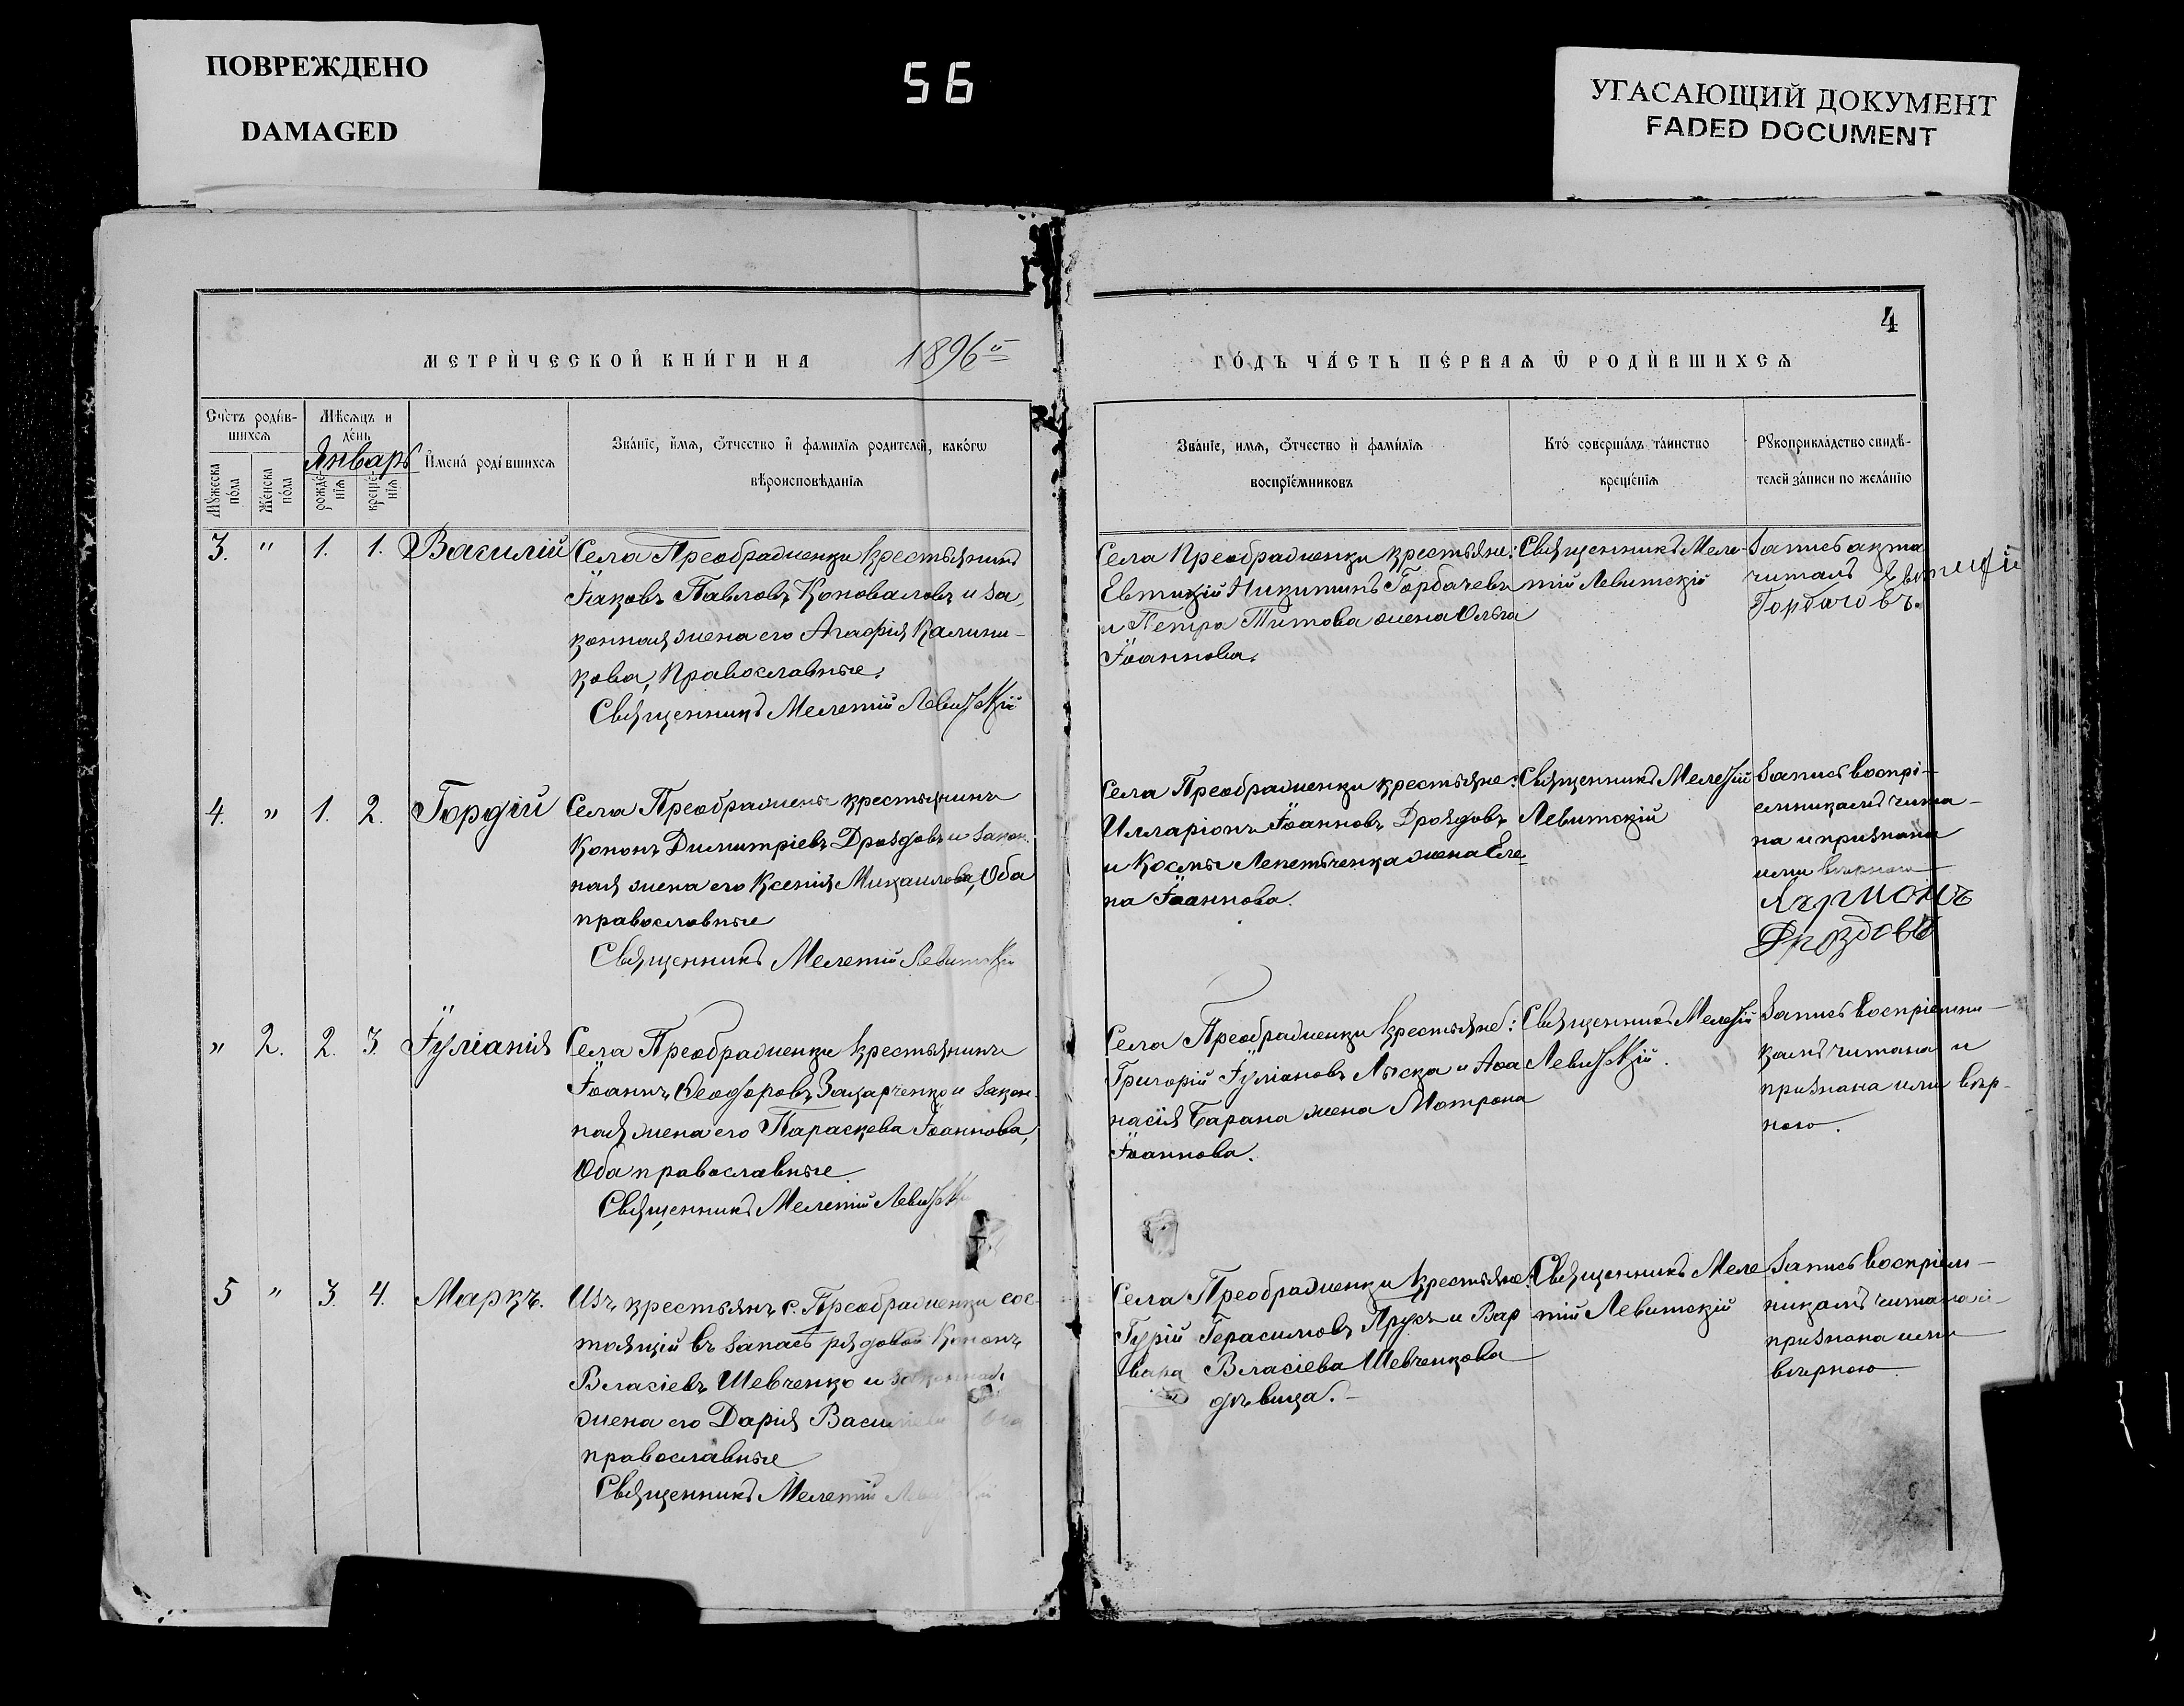 ПОВРЕЖДЕНО
DAMAGED
56
УГАСАЮЩИЙ ДОКУМЕНТ
FADED DOCUMENT
4
МЕТРИ́ЧЕСКОЙ КНИ́ГИ НА 1896й
ГО́ДЪ ЧА́СТЬ ПЕ́РВАѦ Ѡ РОДИ́ВШИХСѦ
Сче́тъ роди́в-
шихсѧ
Мꙋ́жеска по́ла
Же́нска по́ла
Мѣ́сѧцъ и
де́нь
Январь
рожде́нїѧ
креще́нїѧ
И҆мена́ роди́вшихсѧ
Зва́нїе, и҆́мѧ, ѻ҆́тчество и҆ фами́лїѧ роди́телей, како́гѡ
вѣроисповѣ́данїѧ
Зва́нїе, и́мѧ, ѻ҆́тчество и҆ фами́лїѧ
воспрїе́мниковъ
Кто́ соверша́лъ та́инство
креще́нїѧ
Рꙋкоприкла́дство свидѣ́-
телей за́писи по жела́нїю
3. " 1. 1. Василій
Села Преображенки крестьянинъ
Іаковъ Павловъ Коноваловъ и за-
конная жена его Агафія Калини-
кова, Православные.
Священникъ Мелетій Левитскій
Села Преображенки крестьяне:
Евтихій Никитинъ Горбачевъ
и Петра Титова жена Ольга
Іоаннова.
Священникъ Меле-
тій Левитскій
Запись акта
читалъ Евтихій
Горбачовъ.
4. " 1. 2. Гордій
Села Преображенк крестьянинъ
Кононъ Димитріевъ Дроздовъ и закон-
ная жена его Ксенія Михаилова, Оба
православные
Священникъ Мелетій Левитскій
Села Преображенки крестьяне:
Илларіонъ Іоанновъ Дроздовъ
и Космы Лепетченка жена Еле-
на Іоаннова.
Священникъ Мелетій
Левитскій
Запись воспрі-
емникамъ чита-
на и признана
ими вѣрною
Ларионъ
Дроздовъ
" 2. 2. 3. Іуліанія
Села Преображенки крестьянинъ
Іоаннъ Ѳеодоровъ Захарченко и закон-
ная жена его Параскева Іоаннова,
Оба православные
Священникъ Мелетій Левитскій
Села Преображенки крестьяне:
Григорій Іуліановъ Лыска и Аѳа
насія Барана жена Матрона
Іоаннова.
Священникъ Мелетій
Левитскій.
Запись воспріемни-
камъ читана и
признана ими вѣр-
ною.
5 " 3. 4. Маркъ.
Изъ крестьянъ с. Преображенки сос-
тоящій въ запасѣ рядовой Кононъ
Власіевъ Шевченко и законная
жена его Дарія Василіева Оба
православные
Священникъ Мелетій
Села Преображенки крестьяне:
Гурій Герасимовъ Прусъ и Вар
вара Власіева Шевченкова
дѣвица.
Священникъ Меле
тій Левитскій
Запись воспріем-
никамъ читана и
признана ими
вѣрною